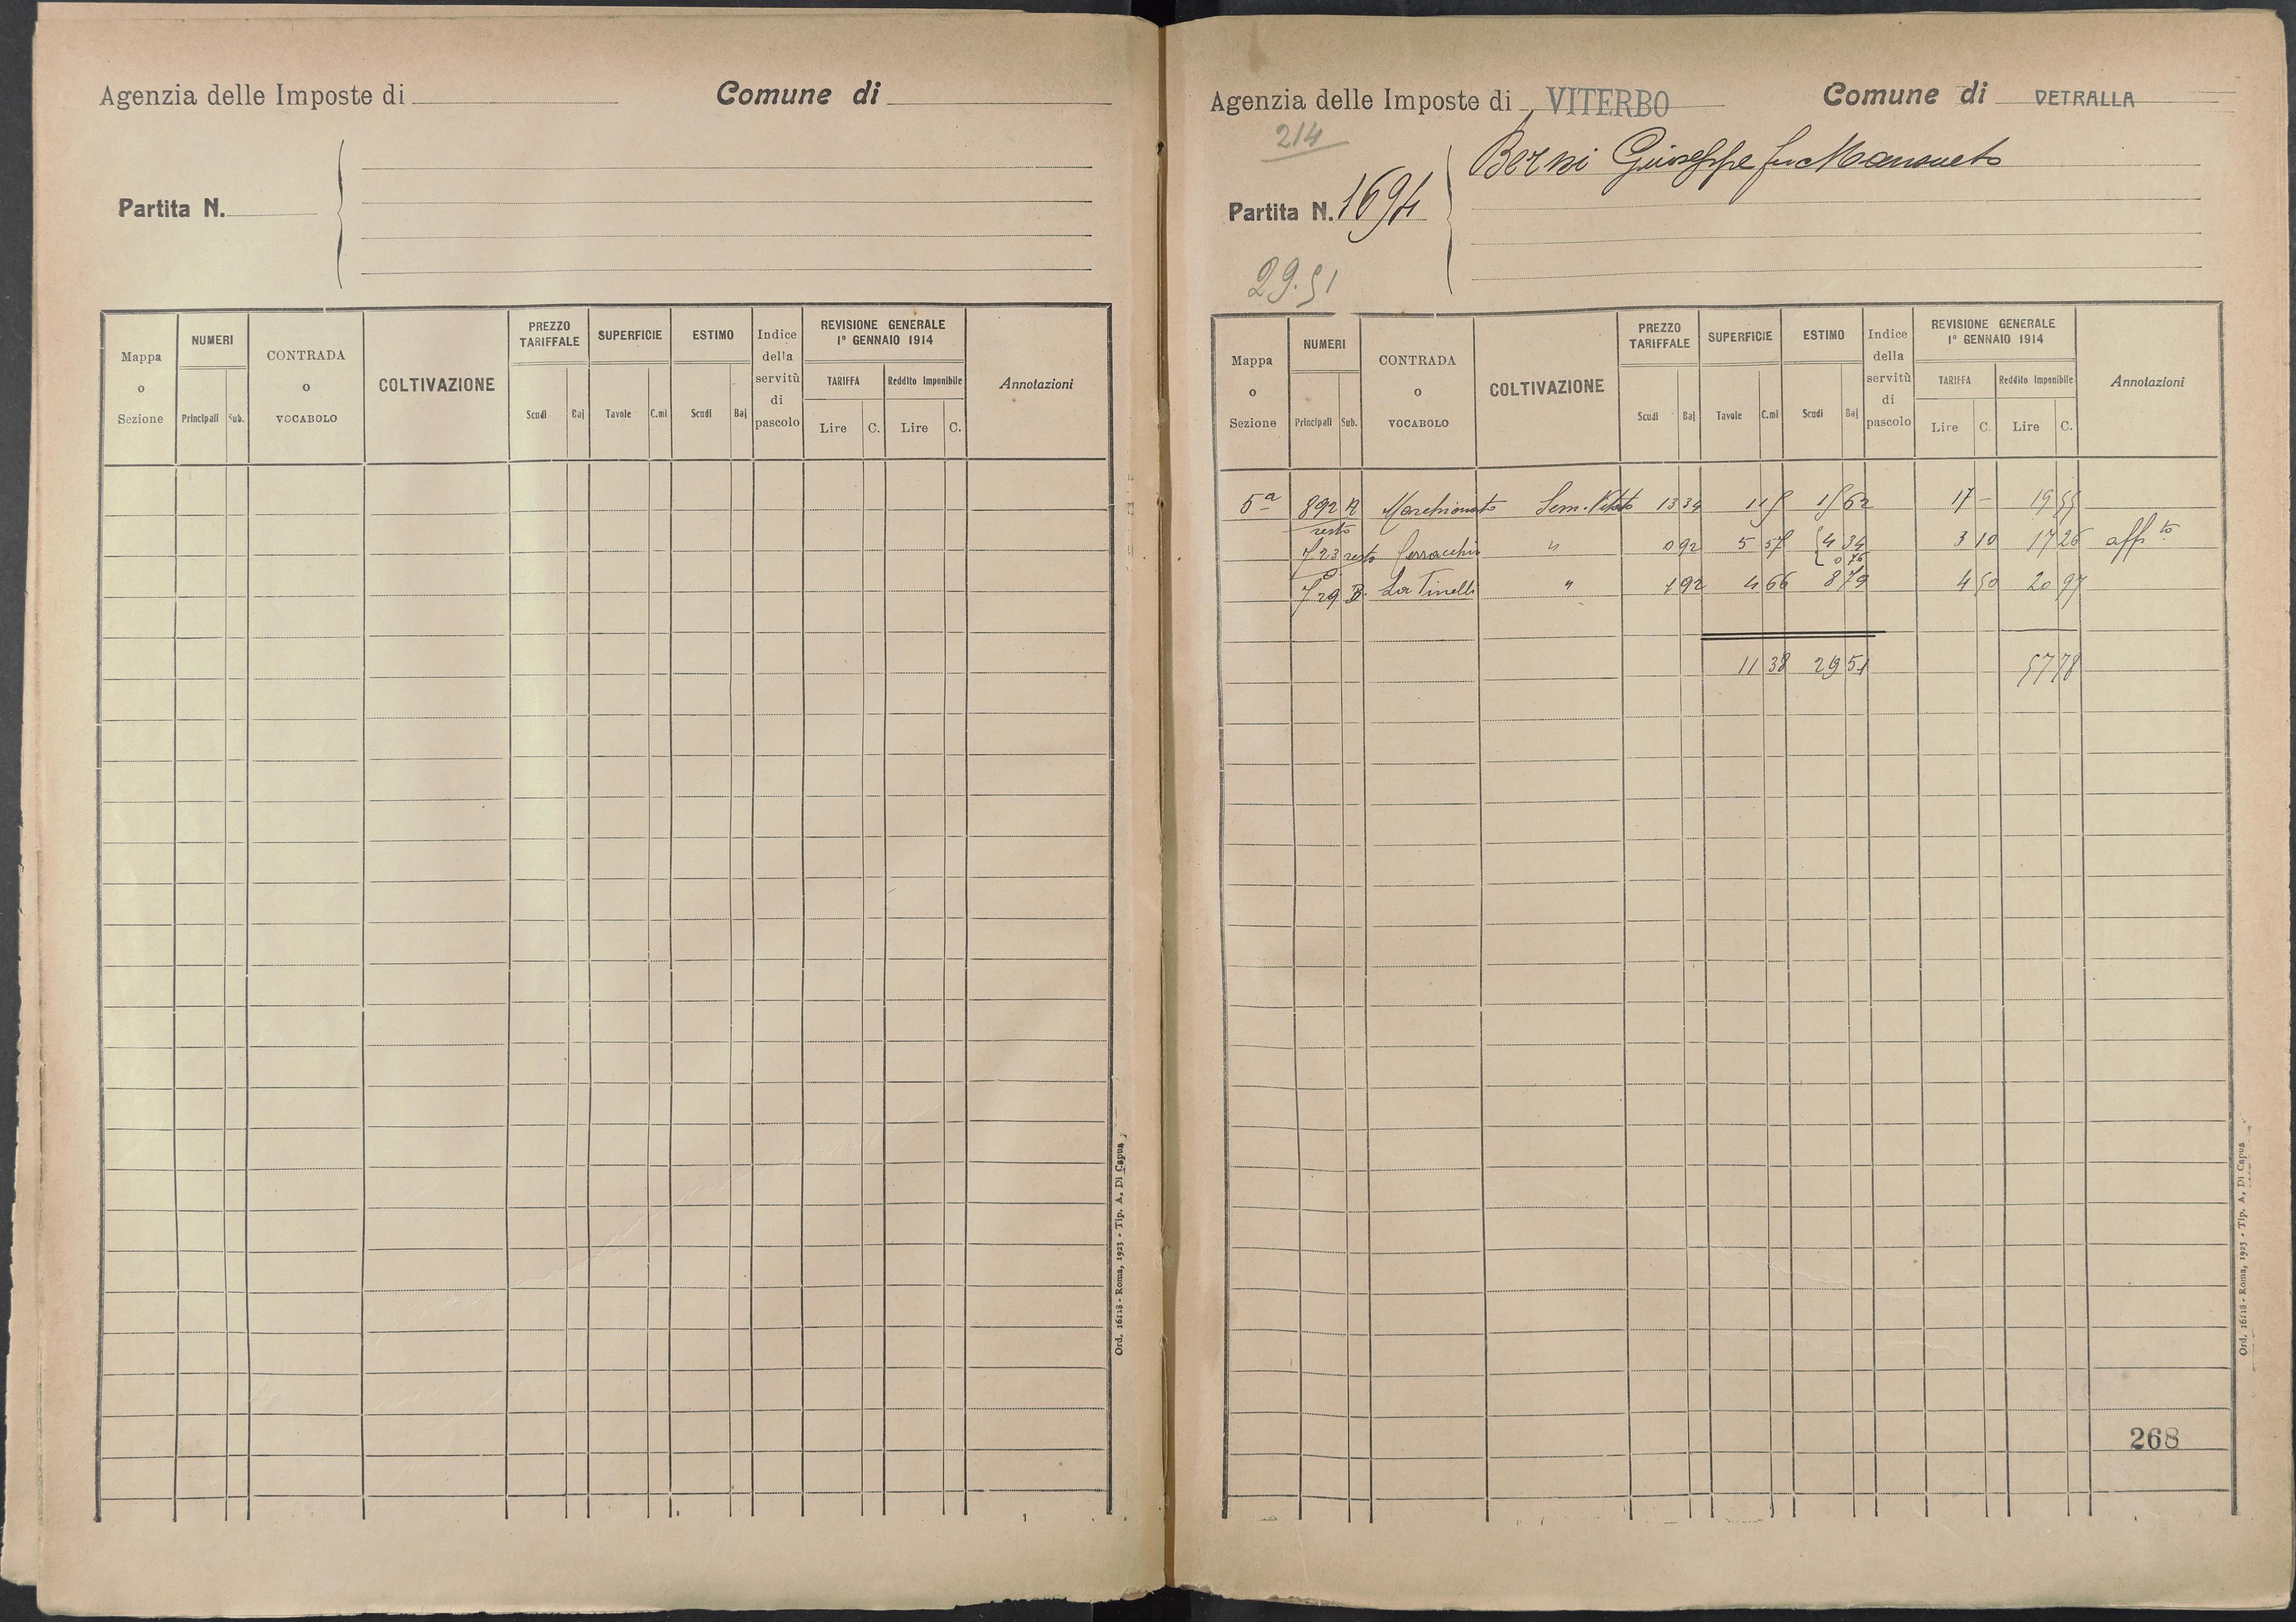 Agenzia delle Imposte di
Comune di
Partita N.
Mappa o Sezione
NUMERI
Principali Sub.
CONTRADA o VOCABOLO
COLTIVAZIONE
PREZZO TARIFFALE
Scudi Baj
SUPERFICIE
Tavole C.mi
ESTIMO
Scudi Baj
Indice della servitù di pascolo
REVISIONE GENERALE
1° GENNAIO 1914
TARIFFA
Reddito Imponibile
Lire C. Lire C.
Annotazioni
Ord. 16118 - Roma, 1923 - Tip. A. Di Capua
Agenzia delle Imposte di VITERBO
Comune di VETRALLA
214
Berni Giuseppe fu Mansueto
Partita N. 1694
29.51
Mappa o Sezione
NUMERI
Principali Sub.
CONTRADA o VOCABOLO
COLTIVAZIONE
PREZZO TARIFFALE
Scudi Baj
SUPERFICIE
Tavole C.mi
ESTIMO
Scudi Baj
Indice della servitù di pascolo
REVISIONE GENERALE
1° GENNAIO 1914
TARIFFA
Reddito Imponibile
Lire C. Lire C.
Annotazioni
5a 892 Marchionato Sem. Vitato 13 34 1 15 15 62 17 - 19 55
resto
723 resto 0 92 5 57 4 34 3 10 17 26 affto
0 76
729 B. La Tinelli " 1 92 4 66 8 79 4 50 20 97
11 38 29 51 57 78
268
Ord. 16118 - Roma, 1923 - Tip. A. Di Capua